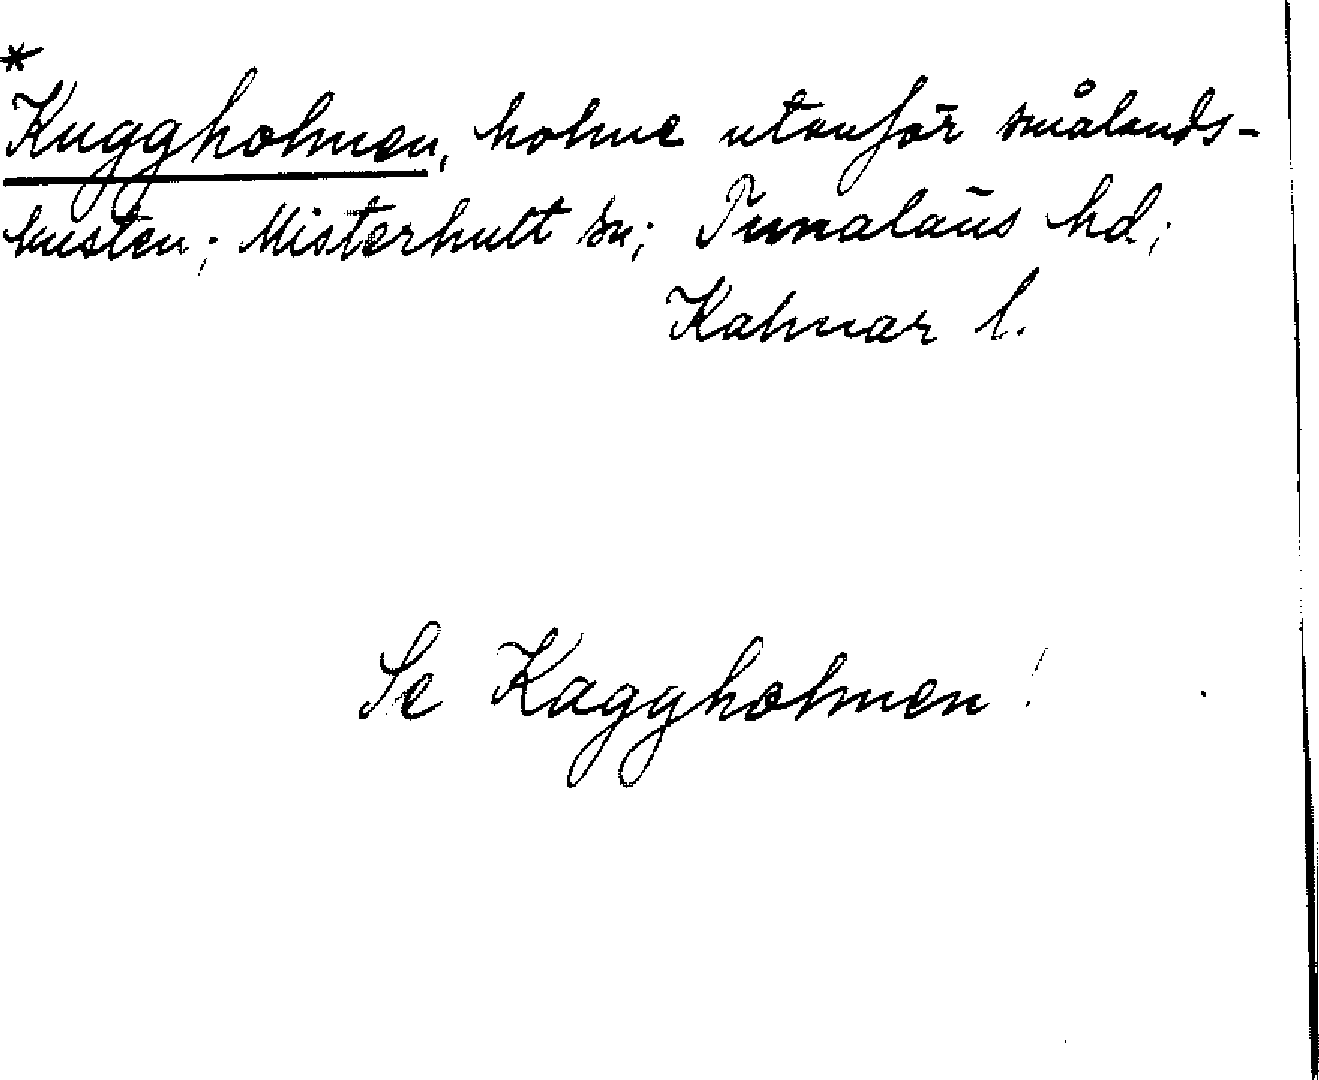 *
Kuggholmen, holme utanför smålands-
kusten; Misterhult sn; Tunaläns hd;
Kalmar l.
Se Kaggholmen!